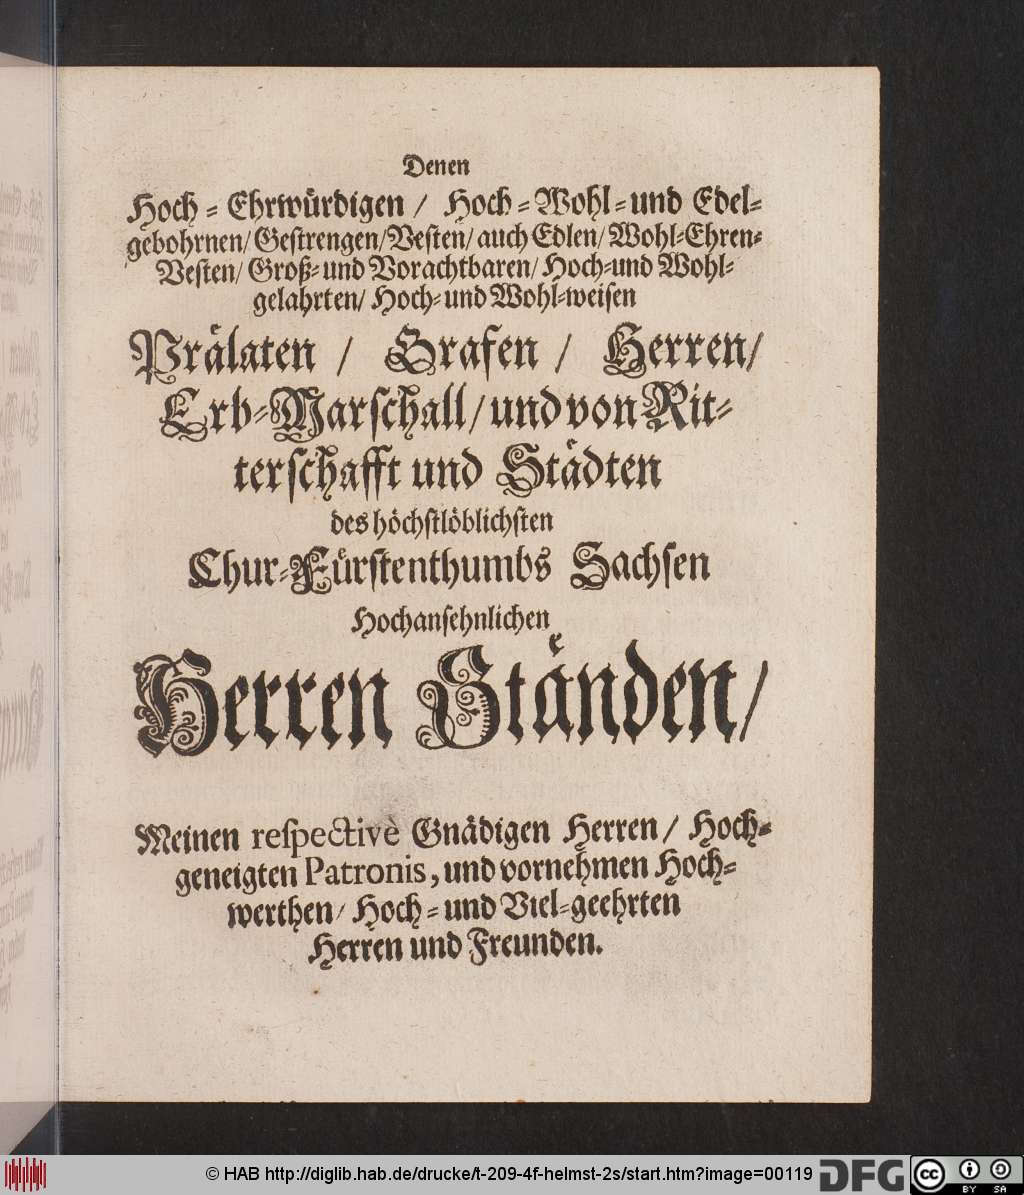 Denen
Hoch-Ehrwürdigen/ Hoch-Wohl-und Edel-
gebohrnen/Gestrengen/Vesten/auch Edlen/Wohl-Ehren-
Vesten/Groß-und Vorachtbaren/Hoch-und Wohl-
gelahrten/Hoch-und Wohl-weisen
Prälaten / Grafen / Herren/
Erb-Marschall/und von Rit-
terschafft und Städten
des höchstlöblichsten
Chur-Fürstenthumbs Sachsen
Hochansehnlichen
Herren Ständen/
Meinen respectivè Gnädigen Herren/ Hoch-
geneigten Patronis, und vornehmen Hoch-
werthen/ Hoch-und Viel-geehrten
Herren und Freunden.
© HAB http://diglib.hab.de/drucke/t-209-4f-helmst-2s/start.htm?image=00119 DFG cc BY SA